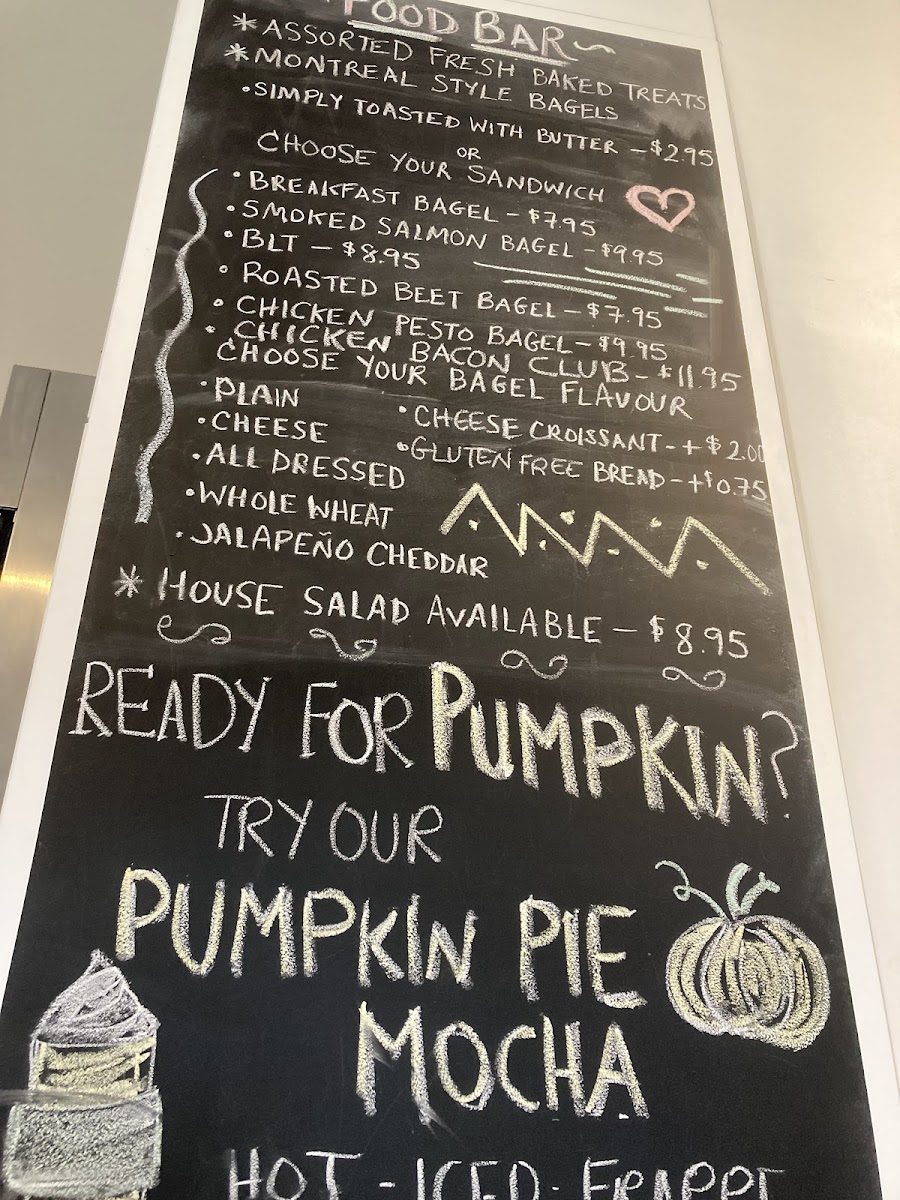 FOOD BAR~
*ASSORTED FRESH BAKED TREATS
*MONTREAL STYLE BAGELS
•SIMPLY TOASTED WITH BUTTER -$2.95
OR
CHOOSE YOUR SANDWICH
•BREAKFAST BAGEL - $7.95
•SMOKED SALMON BAGEL - $9.95
•BLT - $8.95
•ROASTED BEET BAGEL - $7.95
•CHICKEN PESTO BAGEL - $9.95
•CHICKEN BACON CLUB - $11.95
CHOOSE YOUR BAGEL FLAVOUR
•PLAIN
•CHEESE
•ALL DRESSED
•WHOLE WHEAT
•JALAPEÑO CHEDDAR
•CHEESE CROISSANT-+$2.00
•GLUTEN FREE BREAD-+$0.75
*HOUSE SALAD AVAILABLE - $8.95
READY FOR PUMPKIN?
TRY OUR
PUMPKIN PIE
MOCHA
HOT - ICED - FRAPPE